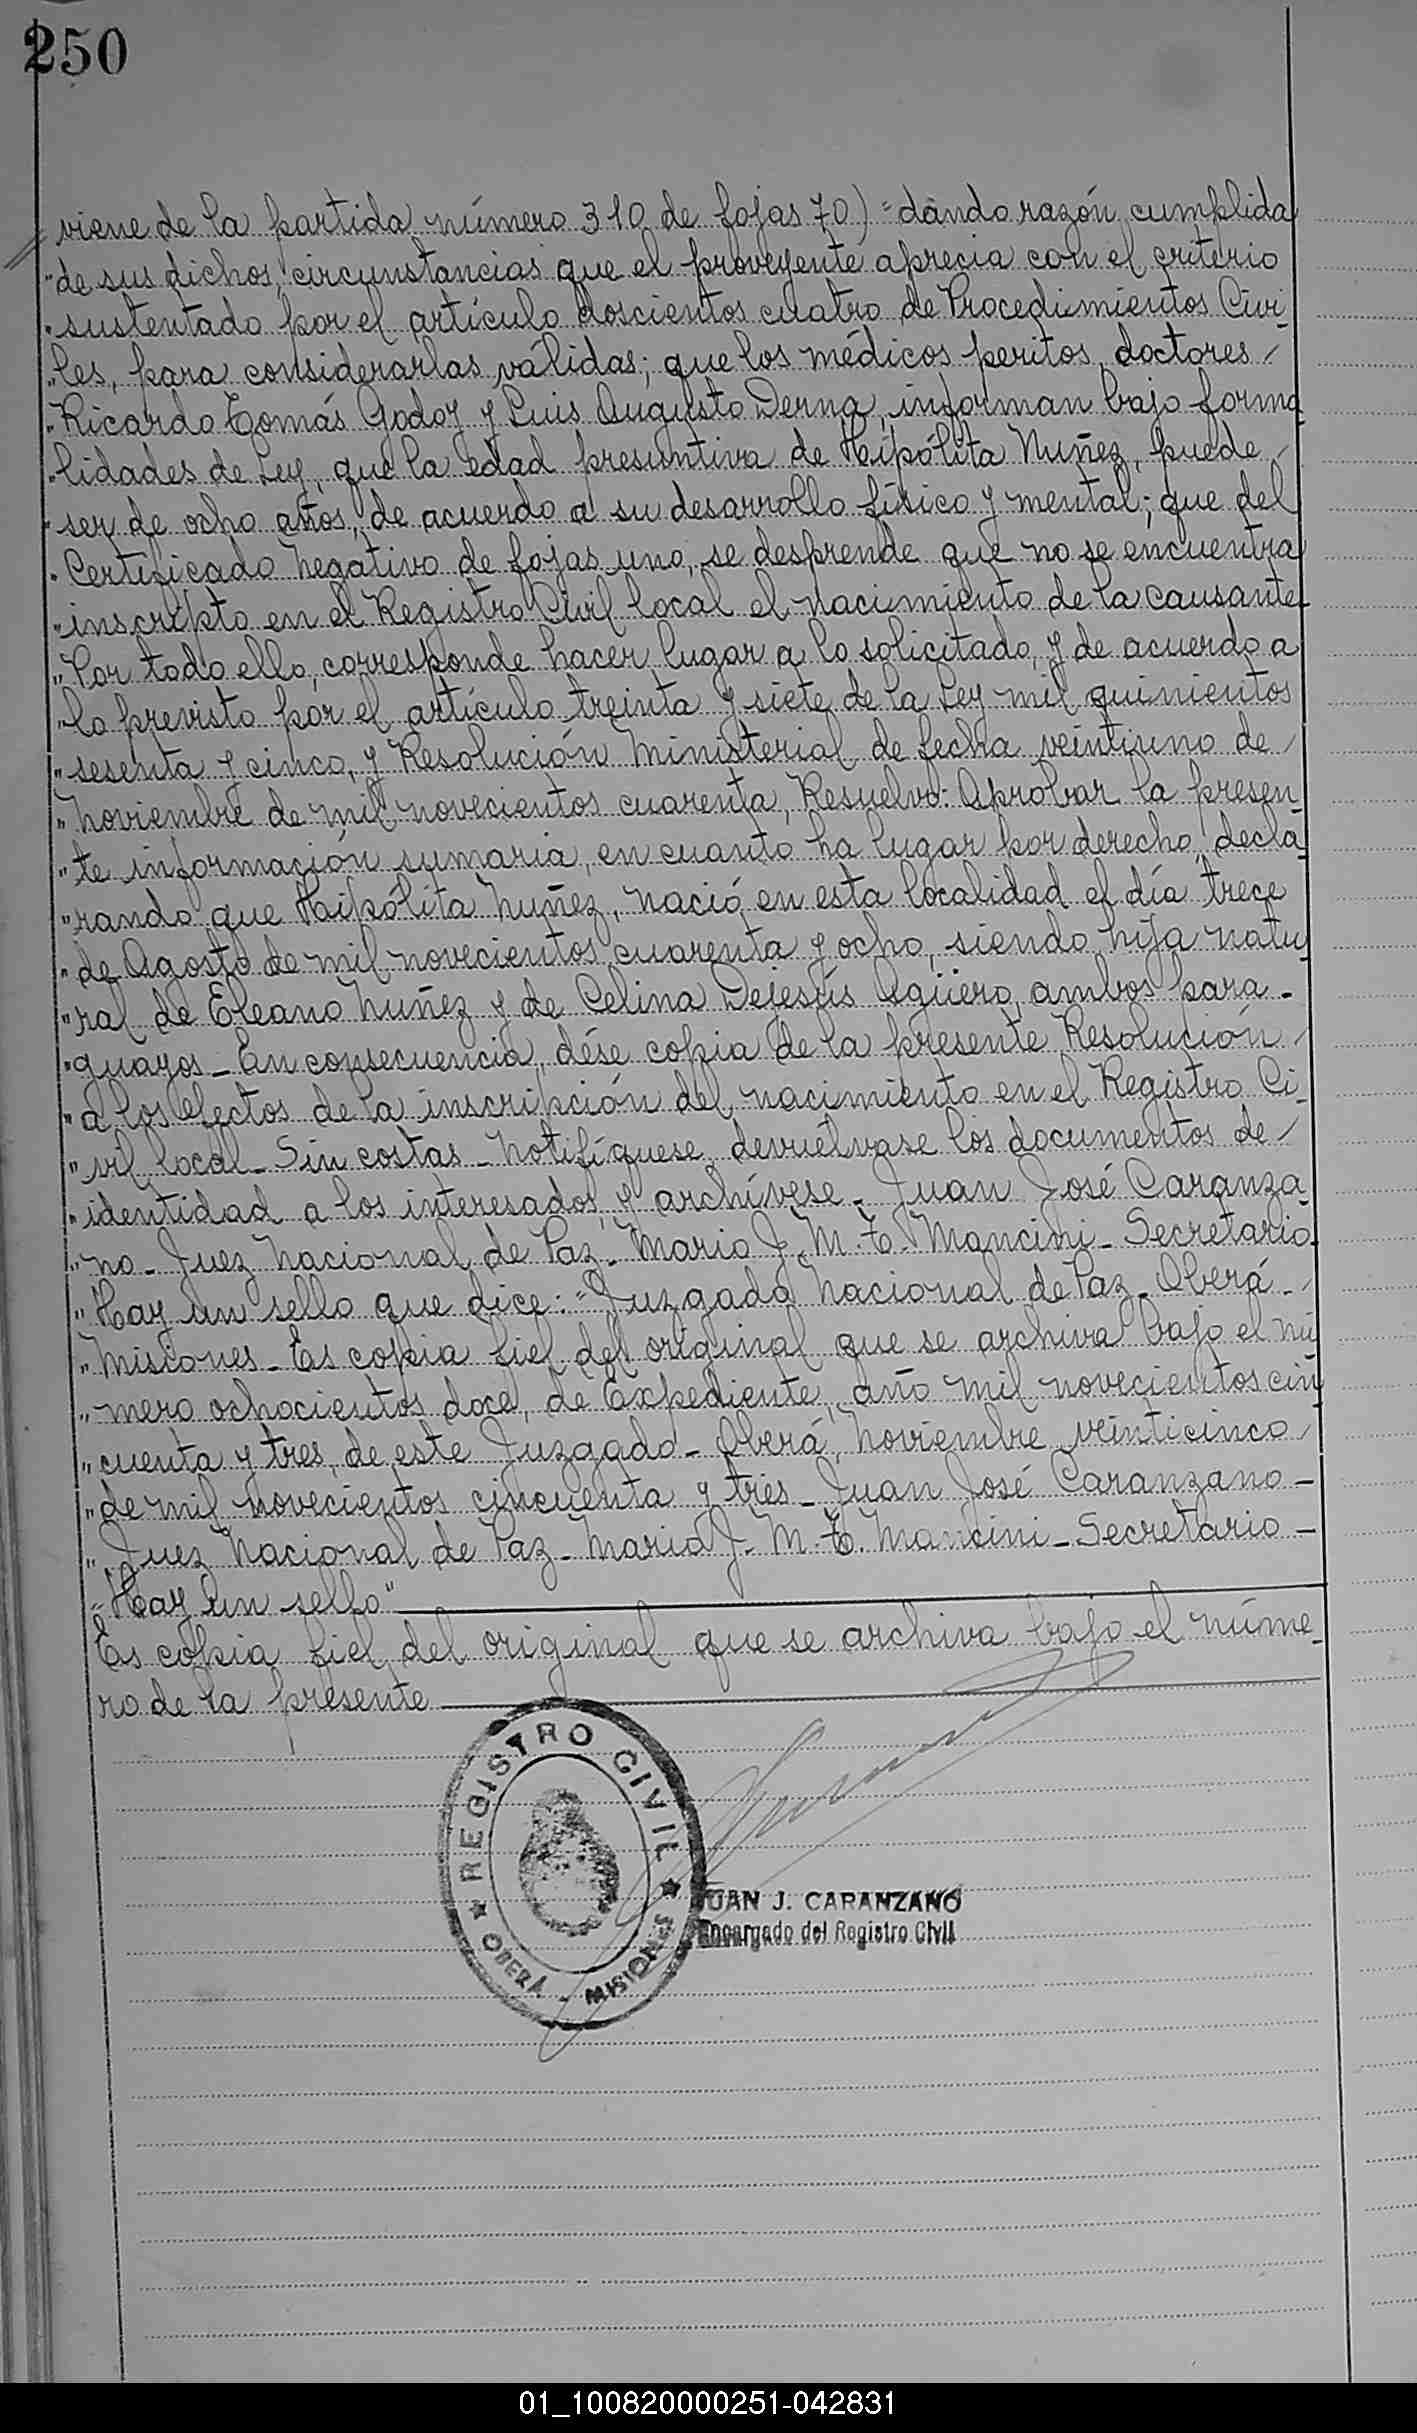 250
viene de la partida número 310 de fojas 70) "dando razón cumplida
"de sus dichos, circunstancias que el proveyente aprecia con el criterio
"sustentado por el artículo doscientos cuatro de Procedimientos Civi-
"les, para considerarlas válidas; que los médicos peritos, doctores
"Ricardo Tomás Godoy y Luis Augusto Derna, informan bajo forma-
"lidades de Ley, que la edad presuntiva de Hipólita Nuñez, puede
"ser de ocho años, de acuerdo a su desarrollo físico y mental; que del
"Certificado Negativo de fojas uno, se desprende que no se encuentra
"inscripto en el Registro Civil local el nacimiento de la causante
"Por todo ello, corresponde hacer lugar a lo solicitado, y de acuerdo a
"lo previsto por el artículo treinta y siete de la Ley mil quinientos
"sesenta y cinco, y Resolución Ministerial de fecha veintiuno de
"Noviembre de mil novecientos cuarenta, Resuelvo: Aprobar la presen-
"te información sumaria, en cuanto ha lugar por derecho, decla-
"rando que Haipólita Nuñez, nació en esta localidad el día trece
"de Agosto de mil novecientos cuarenta y ocho, siendo hija natu-
"ral de Eleano Nuñez y de Celina Dejesús Agüero, ambos para-
"guayos_ En consecuencia, dése copia de la presente Resolución
"a los efectos de la inscripción del nacimiento en el Registro Ci-
"vil local_ Sin costas_ Notifíquese, devuélvase los documentos de
"identidad a los interesados, y archívese_ Juan José Caranza-
"no_ Juez Nacional de Paz_ Mario J. M. T. Mancini_ Secretario_
"Hay un sello que dice: "Juzgado Nacional de Paz_ Oberá_
"Misiones_ Es copia fiel del original que se archiva bajo el nú-
"mero ochocientos doce, de Expediente, año mil novecientos cin-
"cuenta y tres, de este Juzgado_ Oberá, Noviembre veinticinco
"de mil novecientos cincuenta y tres_ Juan José Caranzano_
"Juez Nacional de Paz_ Mario J. M. T. Mancini_ Secretario_
"Hay un sello"
Es copia fiel del original que se archiva bajo el núme-
ro de la presente
REGISTRO CIVIL
OBERÁ - MISIONES
JUAN J. CARANZANO
Encargado del Registro Civil
01_100820000251-042831